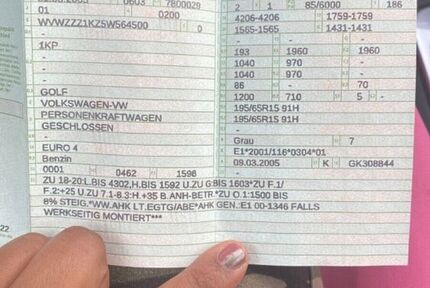 0603 7B00029
01 0200
WVWZZZ1KZ5W564500 0
-
1KP
-
-
GOLF
VOLKSWAGEN-VW
PERSONENKRAFTWAGEN
GESCHLOSSEN
-
EURO 4
Benzin
0001 0462 1598
2 1 85/6000 186
4206-4206 1759-1759
1565-1565 1431-1431
-
193 1960 1960
1040 970 -
1040 970 -
86 - 70
1200 710 5 -
195/65R15 91H
195/65R15 91H
-
Grau 7
E1*2001/116*0304*01
09.03.2005 K GK308844
ZU 18-20:L.BIS 4302,H.BIS 1592 U.ZU G:BIS 1603*ZU F.1/
F.2:+25 U.ZU 7.1-8.3:H.+35 B.ANH-BETR.*ZU O.1:1500 BIS
8% STEIG.*WW.AHK LT.EGTG/ABE*AHK GEN.:E1 00-1346 FALLS
WERKSEITIG MONTIERT***